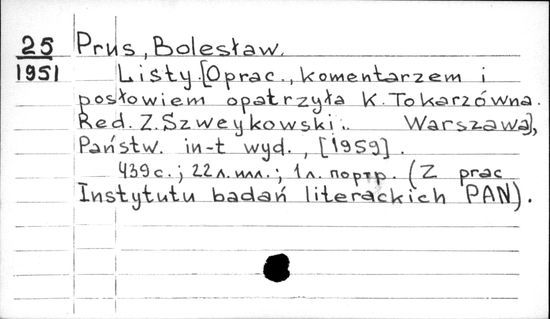 25
1951
Prus, Bolesław.
Listy. [Oprac., komentarzem i
posłowiem opatrzyła K. Tokarzówna.
Red. Z. Szweykowski. Warszawa],
Państw. in-t wyd., [1959].
439 с.; 22 л. илл.; 1 л. портр. (Z prac
Instytutu badań literackich PAN).